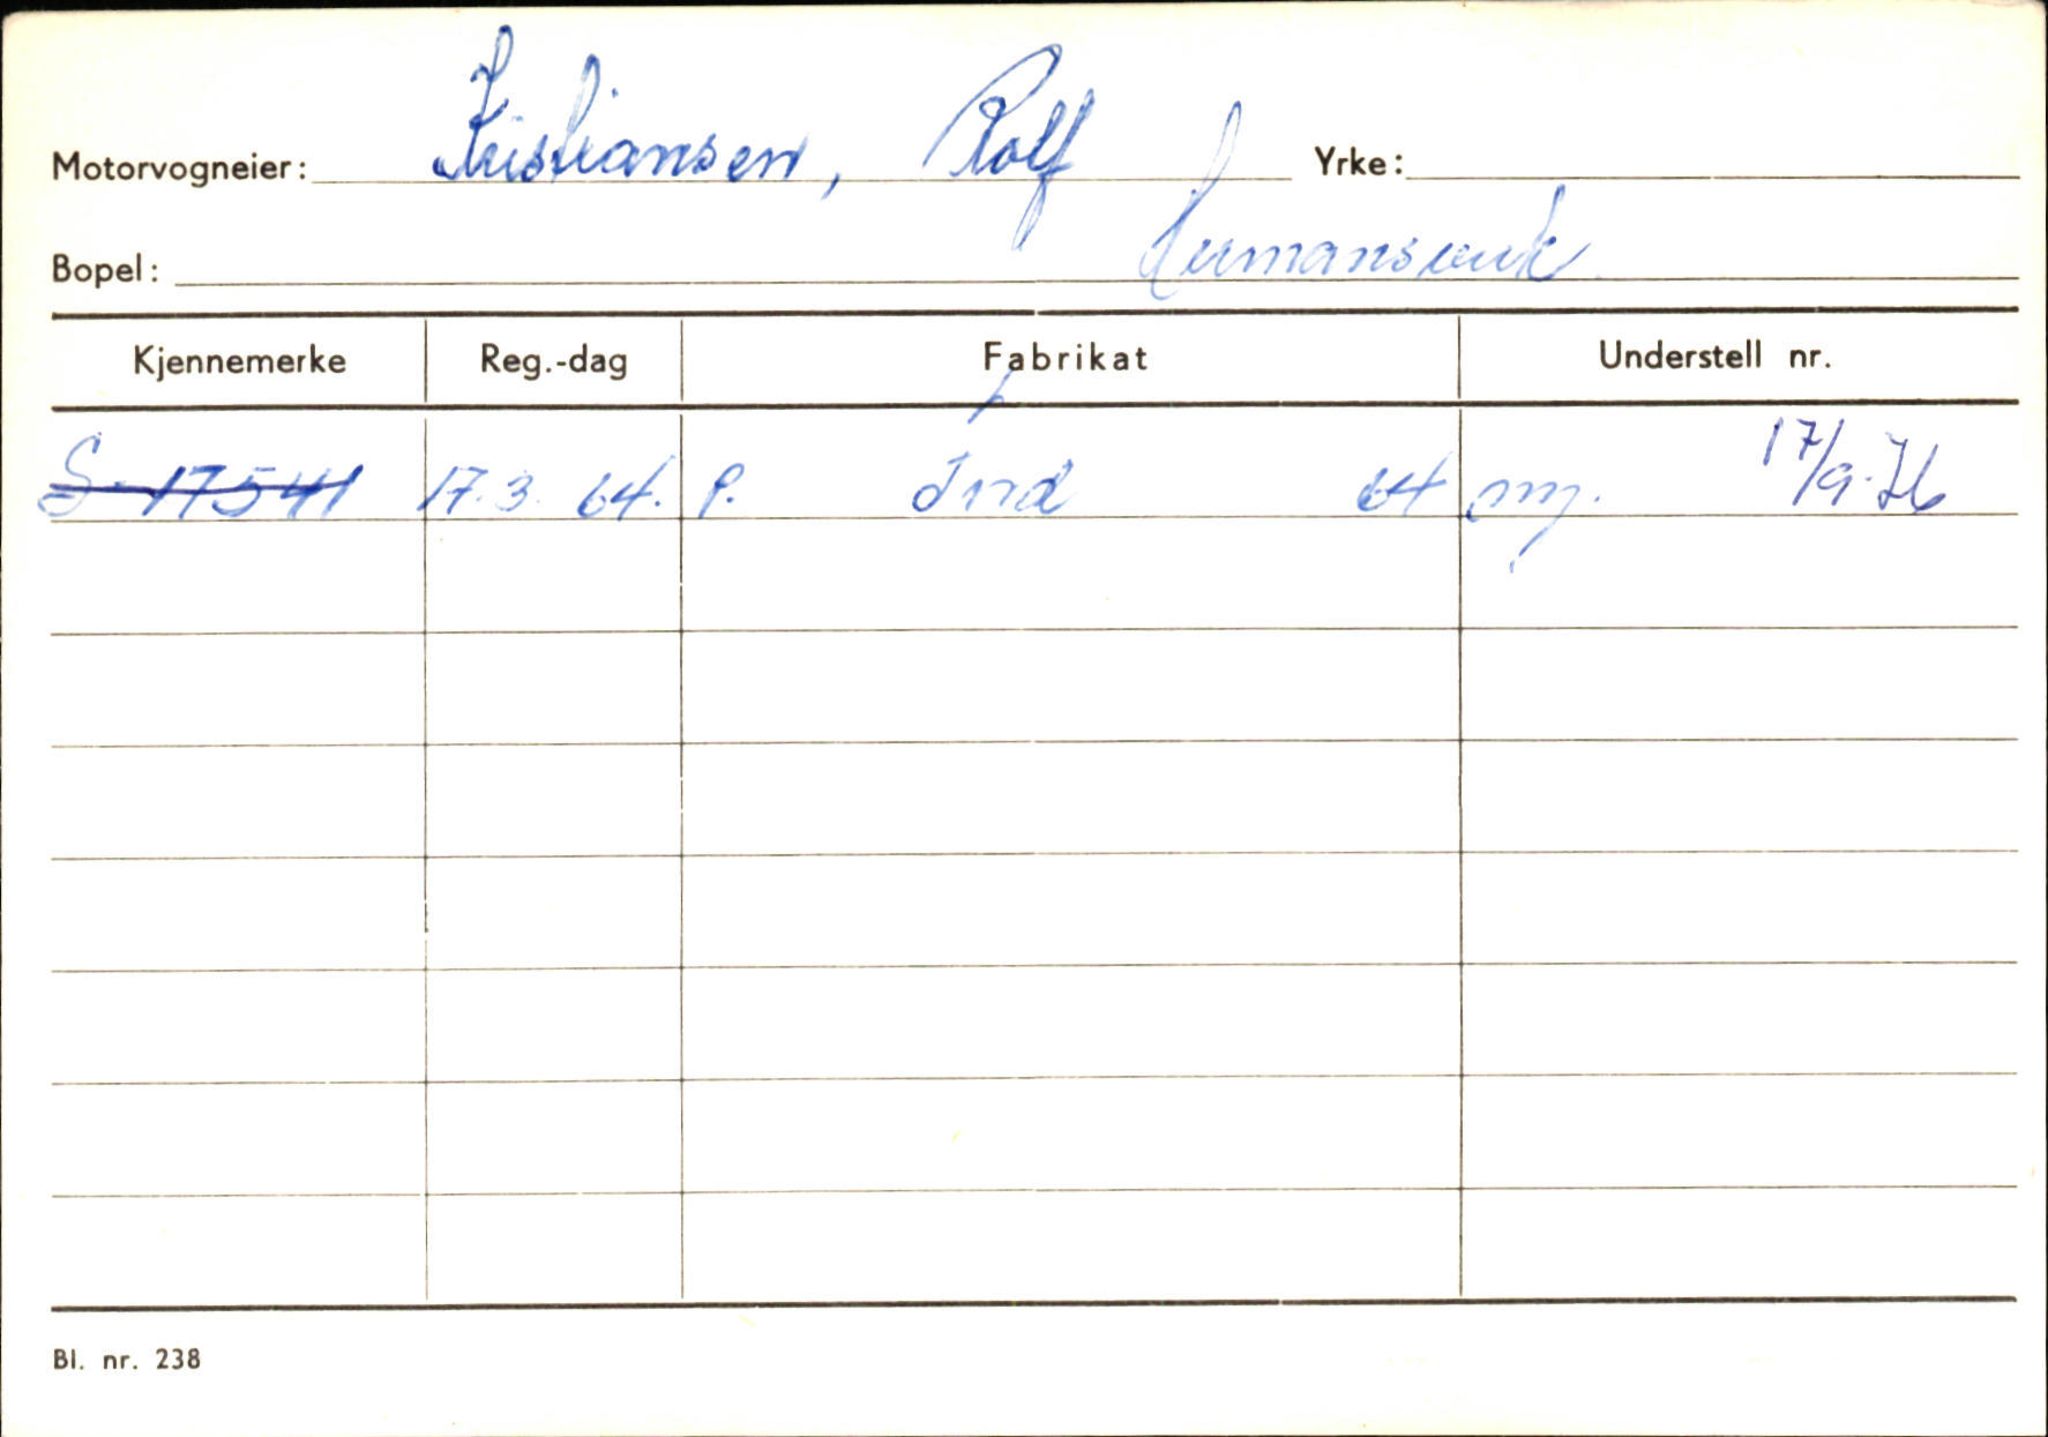 Motorvogneier: Kristiansen, Rolf Yrke:
Bopel: Hermansverk
Kjennemerke Reg.-dag Fabrikat Understell nr.
S-17541 17.3.64. P. Ford 64 ny. 17/9-76
Bl. nr. 238